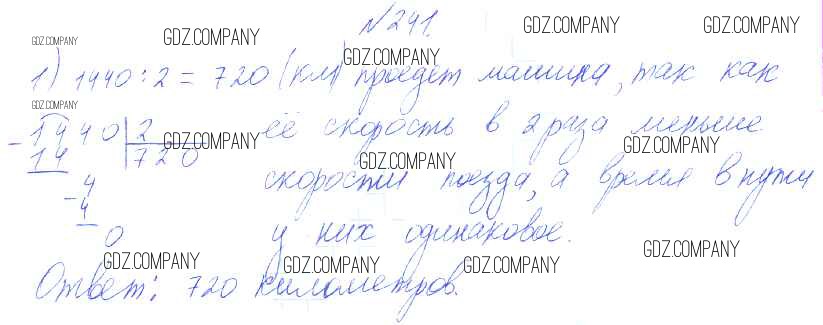 №241.
GDZ.COMPANY GDZ.COMPANY GDZ.COMPANY GDZ.COMPANY
GDZ.COMPANY
1) 1440:2=720 (км) проедет машина, так как
GDZ.COMPANY
-1440|2 её скорость в 2 раза меньше
14 720 GDZ.COMPANY GDZ.COMPANY GDZ.COMPANY
-4 скорости поезда, а время в пути
4
0 у них одинаковое.
GDZ.COMPANY GDZ.COMPANY GDZ.COMPANY GDZ.COMPANY
Ответ: 720 километров.